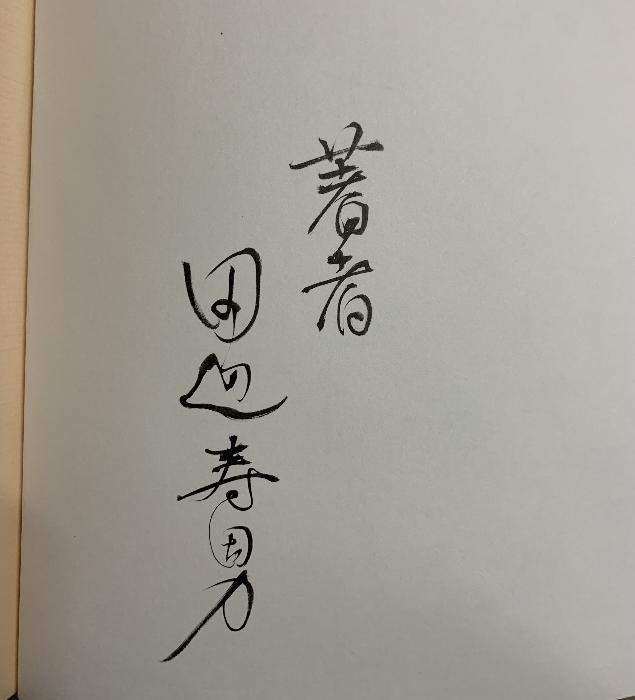 著者
田辺寿男